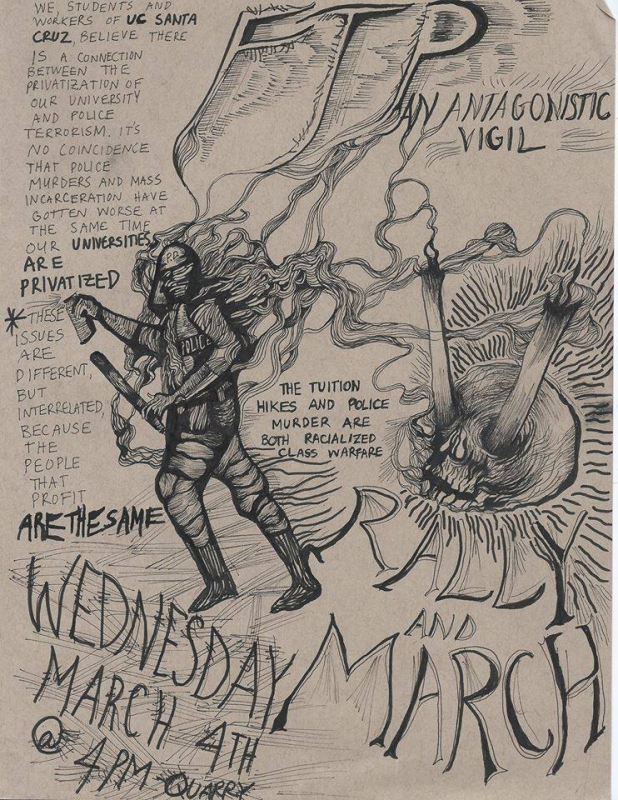 WE, STUDENTS AND
WORKERS OF UC SANTA
CRUZ, BELIEVE THERE
IS A CONNECTION
BETWEEN THE
PRIVATIZATION OF
OUR UNIVERSITY
AND POLICE
TERRORISM. IT'S
NO COINCIDENCE
THAT POLICE
MURDERS AND MASS
INCARCERATION HAVE
GOTTEN WORSE AT
THE SAME TIME
OUR UNIVERSITIES
ARE
PRIVATIZED
*THESE
ISSUES
ARE
DIFFERENT,
BUT
INTERRELATED,
BECAUSE
THE
PEOPLE
THAT
PROFIT
ARE THE SAME
FTP
AN ANTAGONISTIC
VIGIL
P.D.
POLICE
THE TUITION
HIKES AND POLICE
MURDER ARE
BOTH RACIALIZED
CLASS WARFARE
RALLY
AND
MARCH
WEDNESDAY,
MARCH 4TH
@ 4PM QUARRY